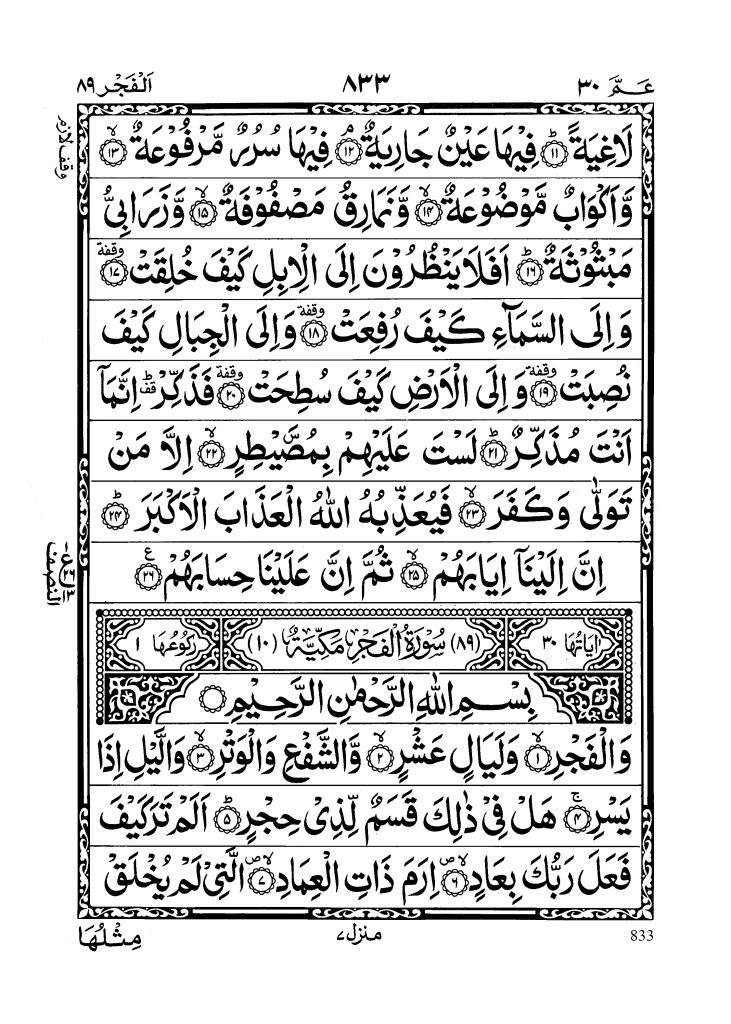 عَمَّ ٣٠ ٨٣٣ اَلْفَجْر ٨٩
وقف لازم
لَاغِيَةً ﴿١١﴾ؕ فِيْهَا عَيْنٌ جَارِيَةٌ ﴿١٢﴾ۘ فِيْهَا سُرُرٌ مَّرْفُوْعَةٌ ﴿١٣﴾ۙ
وَّاَكْوَابٌ مَّوْضُوْعَةٌ ﴿١٤﴾ۙ وَّنَمَارِقُ مَصْفُوْفَةٌ ﴿١٥﴾ۙ وَّزَرَابِيُّ
مَبْثُوْثَةٌ ﴿١٦﴾ؕ اَفَلَا يَنْظُرُوْنَ اِلَى الْاِبِلِ كَيْفَ خُلِقَتْ ﴿١٧﴾ وقفة
وَاِلَى السَّمَآءِ كَيْفَ رُفِعَتْ ﴿١٨﴾ وقفة وَاِلَى الْجِبَالِ كَيْفَ
نُصِبَتْ ﴿١٩﴾ وقفة وَاِلَى الْاَرْضِ كَيْفَ سُطِحَتْ ﴿٢٠﴾ وقفة فَذَكِّرْ قف اِنَّمَاۤ
اَنْتَ مُذَكِّرٌ ﴿٢١﴾ؕ لَسْتَ عَلَيْهِمْ بِمُصَۜيْطِرٍ ﴿٢٢﴾ۙ اِلَّا مَنْ
تَوَلّٰى وَكَفَرَ ﴿٢٣﴾ۙ فَيُعَذِّبُهُ اللّٰهُ الْعَذَابَ الْاَكْبَرَ ﴿٢٤﴾ؕ
اِنَّ اِلَيْنَاۤ اِيَابَهُمْ ﴿٢٥﴾ۙ ثُمَّ اِنَّ عَلَيْنَا حِسَابَهُمْ ﴿٢٦﴾ ع
النصف
اٰيَاتُهَا ٣٠ (٨٩) سُوْرَةُ الْفَجْرِ مَكِّيَّةٌ (١٠) رُكُوْعُهَا ١
بِسْمِ اللّٰهِ الرَّحْمٰنِ الرَّحِيْمِ
وَالْفَجْرِ ﴿١﴾ۙ وَلَيَالٍ عَشْرٍ ﴿٢﴾ۙ وَّالشَّفْعِ وَالْوَتْرِ ﴿٣﴾ۙ وَالَّيْلِ اِذَا
يَسْرِ ﴿٤﴾ۚ هَلْ فِيْ ذٰلِكَ قَسَمٌ لِّذِيْ حِجْرٍ ﴿٥﴾ؕ اَلَمْ تَرَ كَيْفَ
فَعَلَ رَبُّكَ بِعَادٍ ﴿٦﴾ اِرَمَ ذَاتِ الْعِمَادِ ﴿٧﴾ الَّتِيْ لَمْ يُخْلَقْ
833 منزل٧ مِثْلُهَا